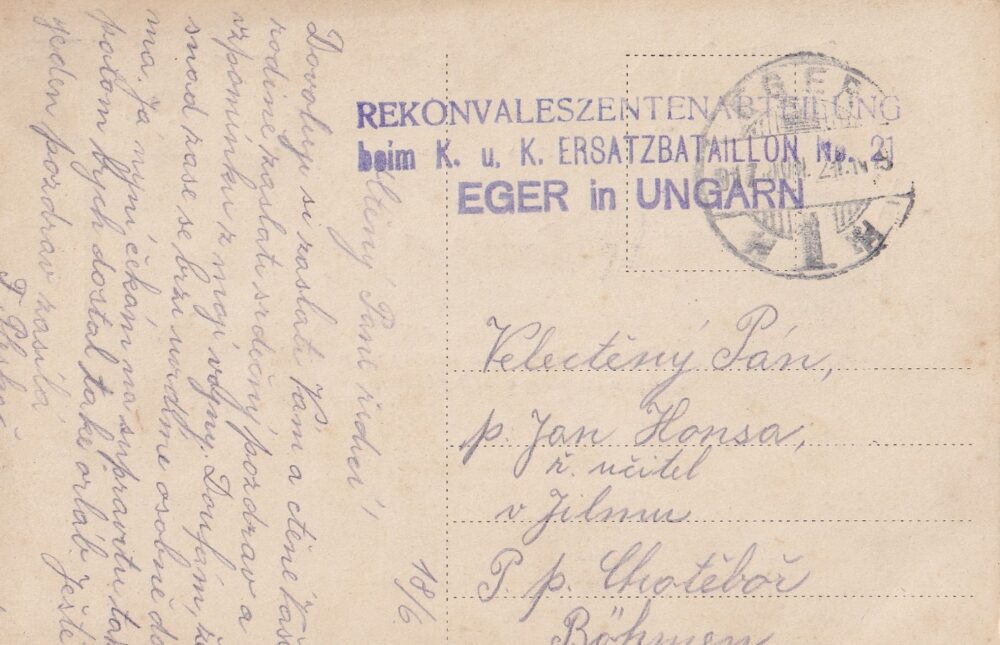 REKONVALESZENTENABTEILUNG
beim K. u. K. ERSATZBATAILLON No. 21
EGER in UNGARN
EGER
917 JUN. 24.
1
18/6.
Ctěný Pane řídící
Dovoluji si zaslati Vám a ctěné Vaší
rodině zaslati srdečný pozdrav a
vzpomínku z mojí vojny. Doufám, že
snad zase se brzi uvidíme osobně do
ma. Já nyní čekám na
potom bych dostal také orláb. Ještě
jeden pozdrav zasílá
F.
Velectěný Pán,
p. Jan Honsa,
ř. učitel
v Jilmu
P. p. Chotěboř
Böhmen